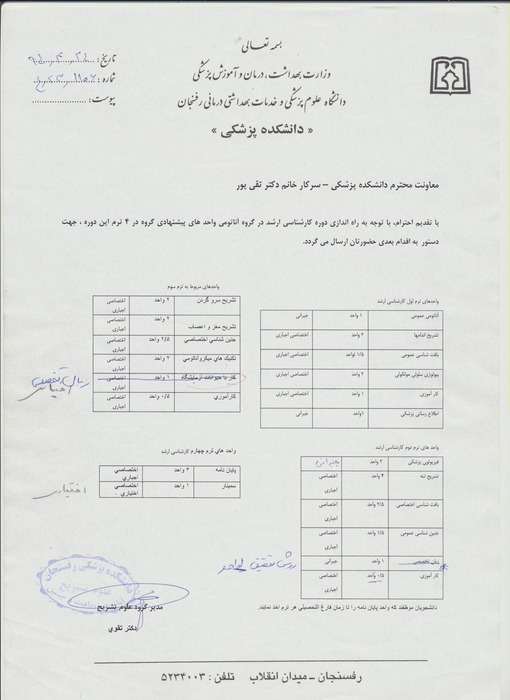 بسمه تعالی
وزارت بهداشت، درمان و آموزش پزشکی
دانشگاه علوم پزشکی و خدمات بهداشتی درمانی رفسنجان
« دانشکده پزشکی »
تاریخ :
شماره :
پیوست :
معاونت محترم دانشکده پزشکی – سرکار خانم دکتر تقی پور
با تقدیم احترام، با توجه به راه اندازی دوره کارشناسی ارشد در گروه آناتومی واحد های پیشنهادی گروه در ۴ ترم این دوره ، جهت
دستور به اقدام بعدی حضورتان ارسال می گردد.
واحدهای ترم اول کارشناسی ارشد
آناتومی عمومی ۱ واحد جبرانی
تشریح اندامها ۲ واحد اختصاصی اجباری
بافت شناسی عمومی ۱/۵ واحد اختصاصی اجباری
بیولوژی سلولی مولکولی ۲ واحد اختصاصی اجباری
کار آموزی ۱ واحد اختصاصی اجباری
اطلاع رسانی پزشکی ۱واحد جبرانی
واحدهای مربوط به ترم سوم
تشریح سرو گردن ۲ واحد اختصاصی اجباری
تشریح مغز و اعصاب ۲ واحد اختصاصی اجباری
جنین شناسي اختصاصي ۲/۵ واحد اختصاصی اجباری
تکنیک های میکروآناتومی ۲ واحد اختصاصی اجباری
کار با حیوانات آزمایشگاه ۱ واحد اختصاصی اجباری
زبان تخصصی
اختیاری
کارآموزی ۰/۵ واحد اختصاصی اجباری
واحد های ترم دوم کارشناسی ارشد
فیزیولوژی پزشکی ۲ واحد جبرانی
تشریح تنه ۳ واحد اختصاصی اجباری
بافت شناسی اختصاصی ۲/۵ واحد اختصاصی اجباری
جنین شناسی عمومی ۱/۵ واحد اختصاصی اجباری
زبان تخصصی ۱ واحد جبرانی
روش تحقیق ۱ واحد
کار آموزی ۰/۵ واحد اختصاصی اجباری
واحد های ترم چهارم کارشناسی ارشد
پایان نامه ۶ واحد اختصاصي اجباري
سمینار ۱ واحد اختصاصي اختیاري
اختیاری
دانشجویان موظفند که واحد پایان نامه را تا زمان فارغ التحصیلی هر ترم اخذ نمایند.
دانشکده پزشکی رفسنجان
مدیر گروه علوم تشریح
دکتر تقوي
رفسنجان – میدان انقلاب تلفن : ۵۲۳۴۰۰۳